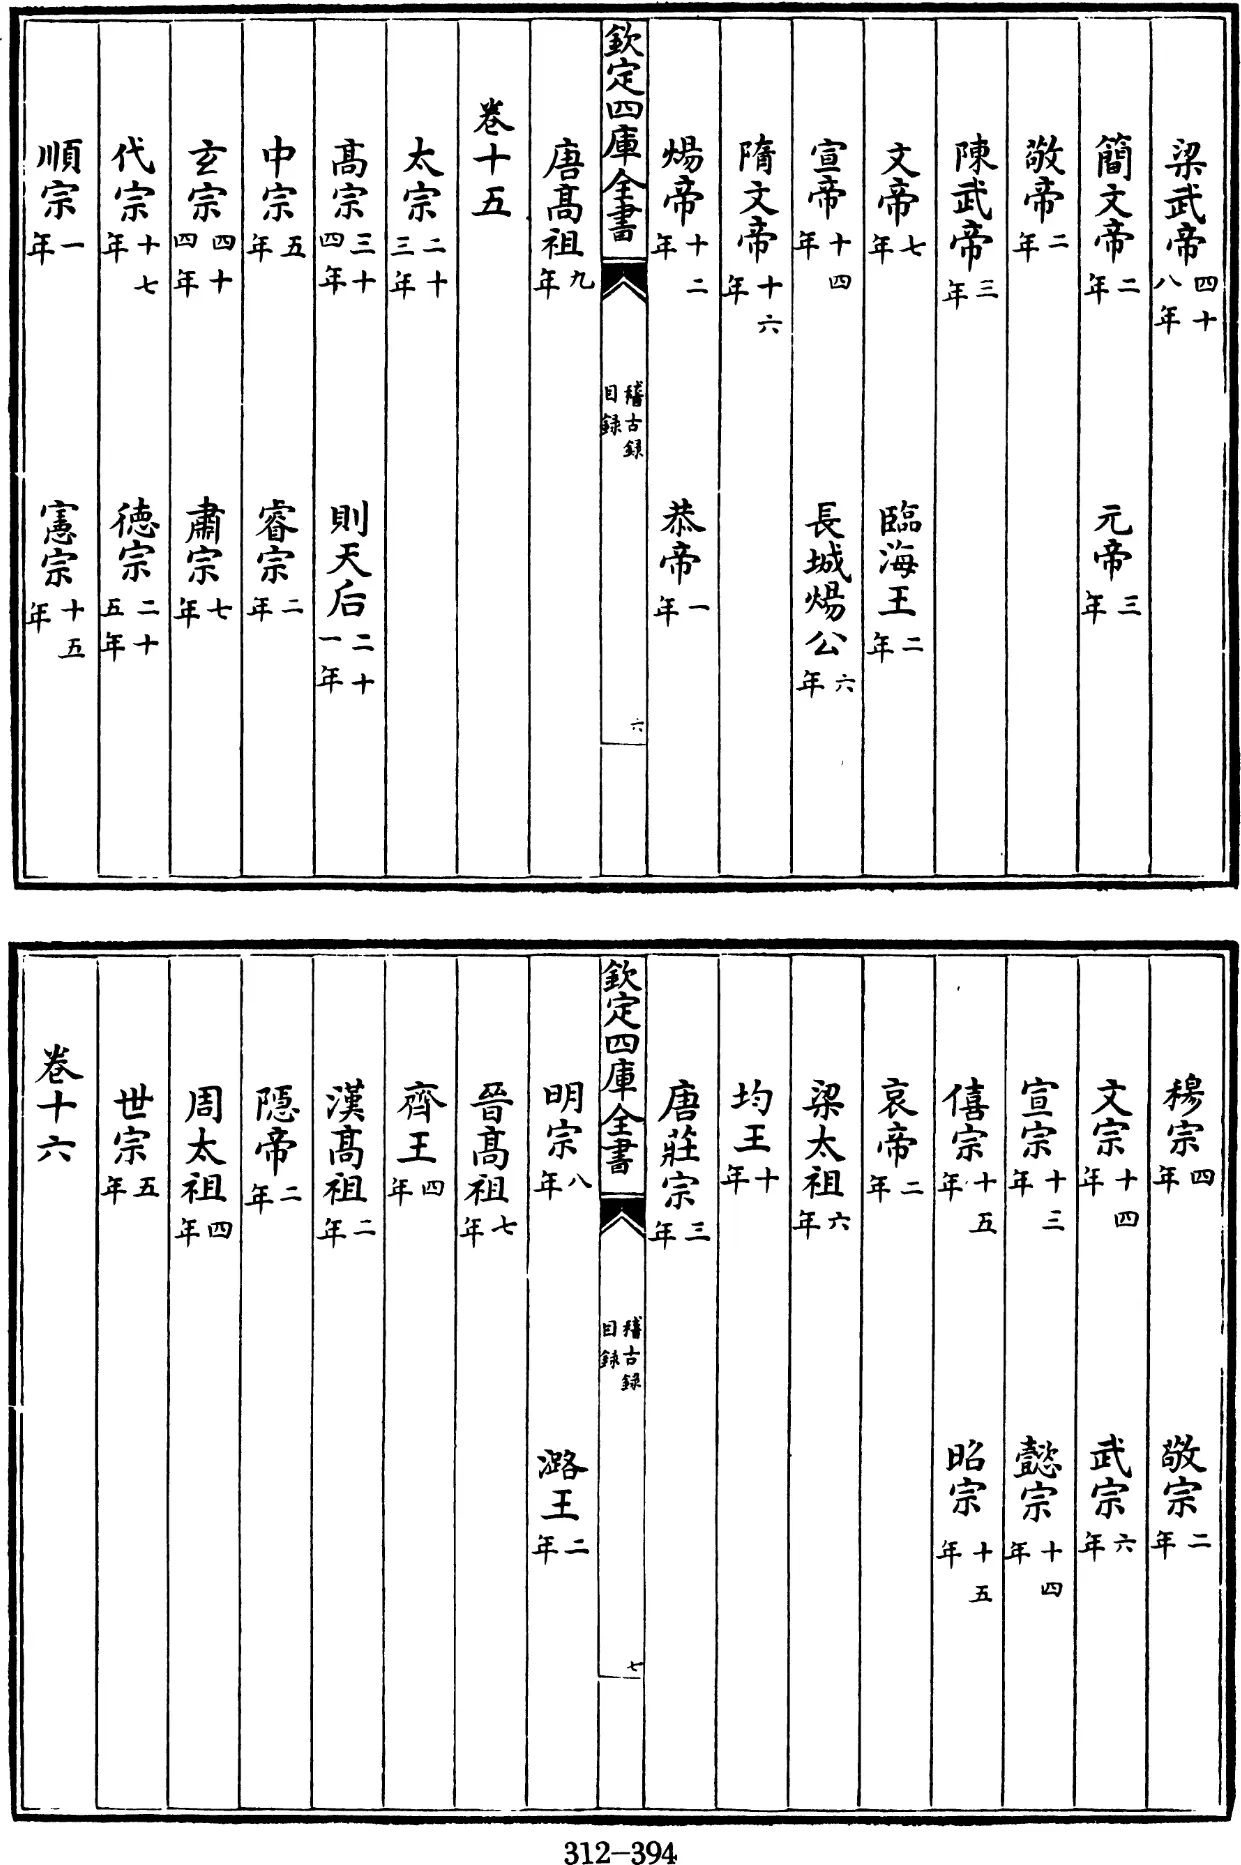 梁武帝四十八年
簡文帝二年 元帝三年
敬帝二年
陳武帝三年
文帝七年 臨海王二年
宣帝十四年 長城煬公六年
隋文帝十六年
煬帝十二年 恭帝一年
欽定四庫全書 稽古録目録 六
唐髙祖九年
卷十五
太宗二十三年
髙宗三十四年 則天后二十一年
中宗五年 睿宗二年
玄宗四十四年 肅宗七年
代宗十七年 德宗二十五年
順宗一年 憲宗十五年
穆宗四年 敬宗二年
文宗十四年 武宗六年
宣宗十三年 懿宗十四年
僖宗十五年 昭宗十五年
哀帝二年
梁太祖六年
均王十年
唐莊宗三年
欽定四庫全書 稽古録目録 七
明宗八年 潞王二年
晉髙祖七年
齊王四年
漢髙祖二年
隠帝二年
周太祖四年
世宗五年
卷十六
312-394